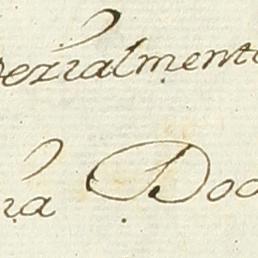 ezialmente
na Doc